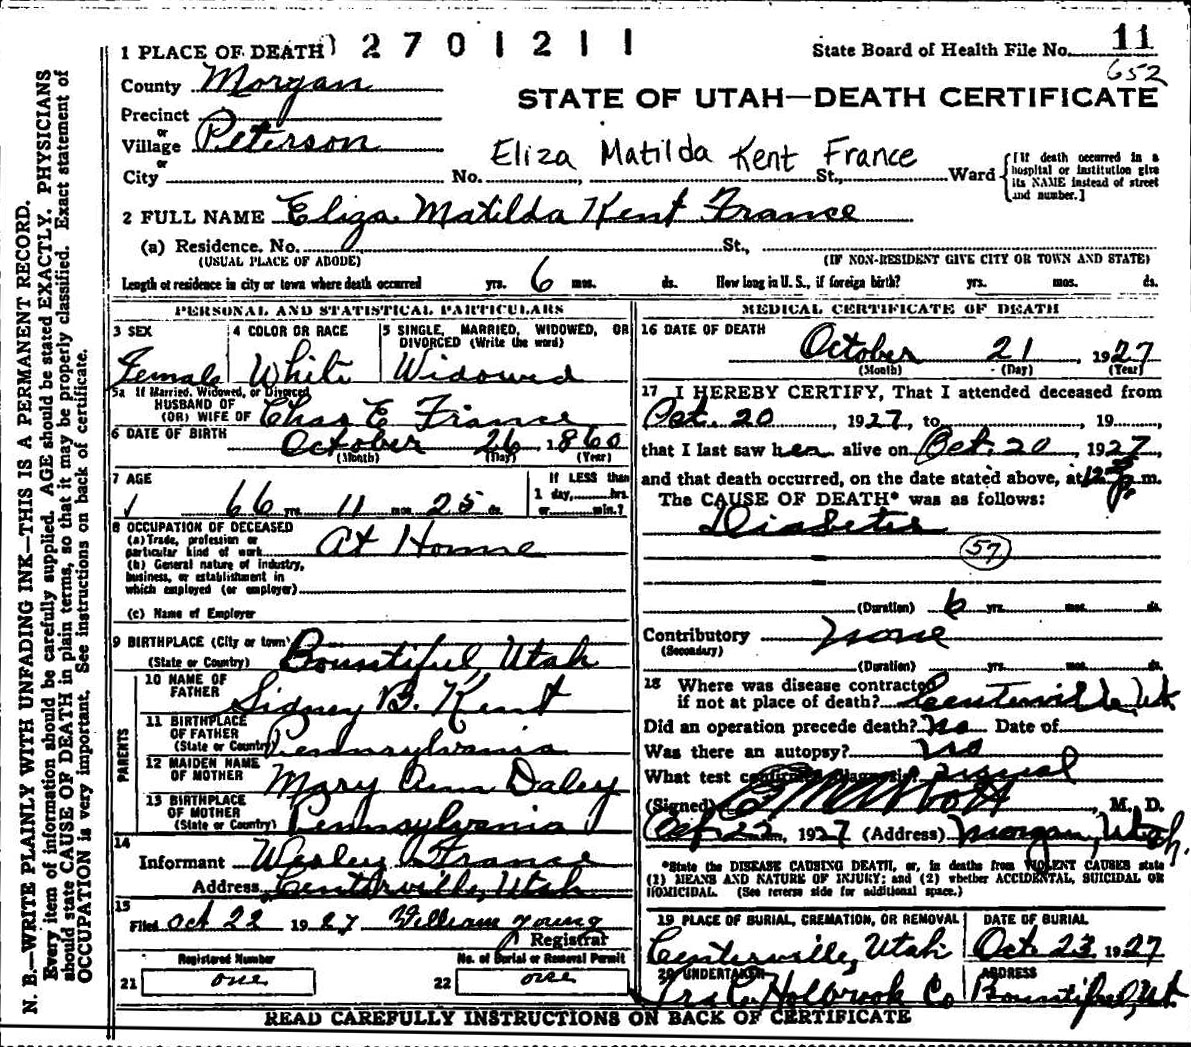 1 PLACE OF DEATH) 2 7 0 1 2 1 1
State Board of Health File No. 11
652
County Morgan
STATE OF UTAH—DEATH CERTIFICATE
Precinct
or
Village Peterson
or
Eliza Matilda Kent France
City No. , St., Ward
[If death occurred in a hospital or institution give its NAME instead of street and number.]
2 FULL NAME Eliza Matilda Kent France
(a) Residence. No. St.,
(USUAL PLACE OF ABODE) (IF NON-RESIDENT GIVE CITY OR TOWN AND STATE)
Length of residence in city or town where death occurred yrs. 6 mos. ds. How long in U. S., if foreign birth? yrs. mos. ds.
PERSONAL AND STATISTICAL PARTICULARS
3 SEX
Female
4 COLOR OR RACE
White
5 SINGLE, MARRIED, WIDOWED, OR
DIVORCED (Write the word)
Widowed
5a If Married, Widowed, or Divorced
HUSBAND OF
(OR) WIFE OF Chas E. France
6 DATE OF BIRTH October 26 1860
(Month) (Day) (Year)
7 AGE
66 yrs. 11 mos. 25 ds.
If LESS than
1 day, hrs.
or min.?
8 OCCUPATION OF DECEASED
(a) Trade, profession or
particular kind of work At Home
(b) General nature of industry,
business, or establishment in
which employed (or employer)
(c) Name of Employer
9 BIRTHPLACE (City or town)
(State or Country) Bountiful, Utah
PARENTS
10 NAME OF
FATHER Sidney B. Kent
11 BIRTHPLACE
OF FATHER
(State or Country) Pennsylvania
12 MAIDEN NAME
OF MOTHER Mary Ann Daley
13 BIRTHPLACE
OF MOTHER
(State or Country) Pennsylvania
14
Informant Wesley France
Address Centerville, Utah
15
Filed Oct 22 1927 William Young
Registrar
Registered Number No. of Burial or Removal Permit
21 one 22 one
MEDICAL CERTIFICATE OF DEATH
16 DATE OF DEATH
October 21, 1927
(Month) (Day) (Year)
17 I HEREBY CERTIFY, That I attended deceased from
Oct. 20, 1927, to , 19 ,
that I last saw her alive on Oct. 20 1927,
and that death occurred, on the date stated above, at 12 p. m.
The CAUSE OF DEATH* was as follows:
Diabetes
57
(Duration) 6 yrs. mos. ds.
Contributory none
(Secondary)
(Duration) yrs. mos. ds.
18 Where was disease contracted
if not at place of death? Centerville, Ut
Did an operation precede death? no Date of
Was there an autopsy? no
What test confirmed diagnosis?
(Signed) , M. D.
Oct 22, 1927 (Address) Morgan, Utah.
*State the DISEASE CAUSING DEATH, or, in deaths from VIOLENT CAUSES state
(1) MEANS AND NATURE OF INJURY; and (2) whether ACCIDENTAL, SUICIDAL OR
HOMICIDAL. (See reverse side for additional space.)
19 PLACE OF BURIAL, CREMATION, OR REMOVAL
Centerville, Utah
DATE OF BURIAL
Oct. 23 1927
20 UNDERTAKER
Holbrook Co
ADDRESS
Bountiful, Ut
READ CAREFULLY INSTRUCTIONS ON BACK OF CERTIFICATE
N. B.—WRITE PLAINLY WITH UNFADING INK—THIS IS A PERMANENT RECORD.
Every item of information should be carefully supplied. AGE should be stated EXACTLY. PHYSICIANS
should state CAUSE OF DEATH in plain terms, so that it may be properly classified. Exact statement of
OCCUPATION is very important. See instructions on back of certificate.